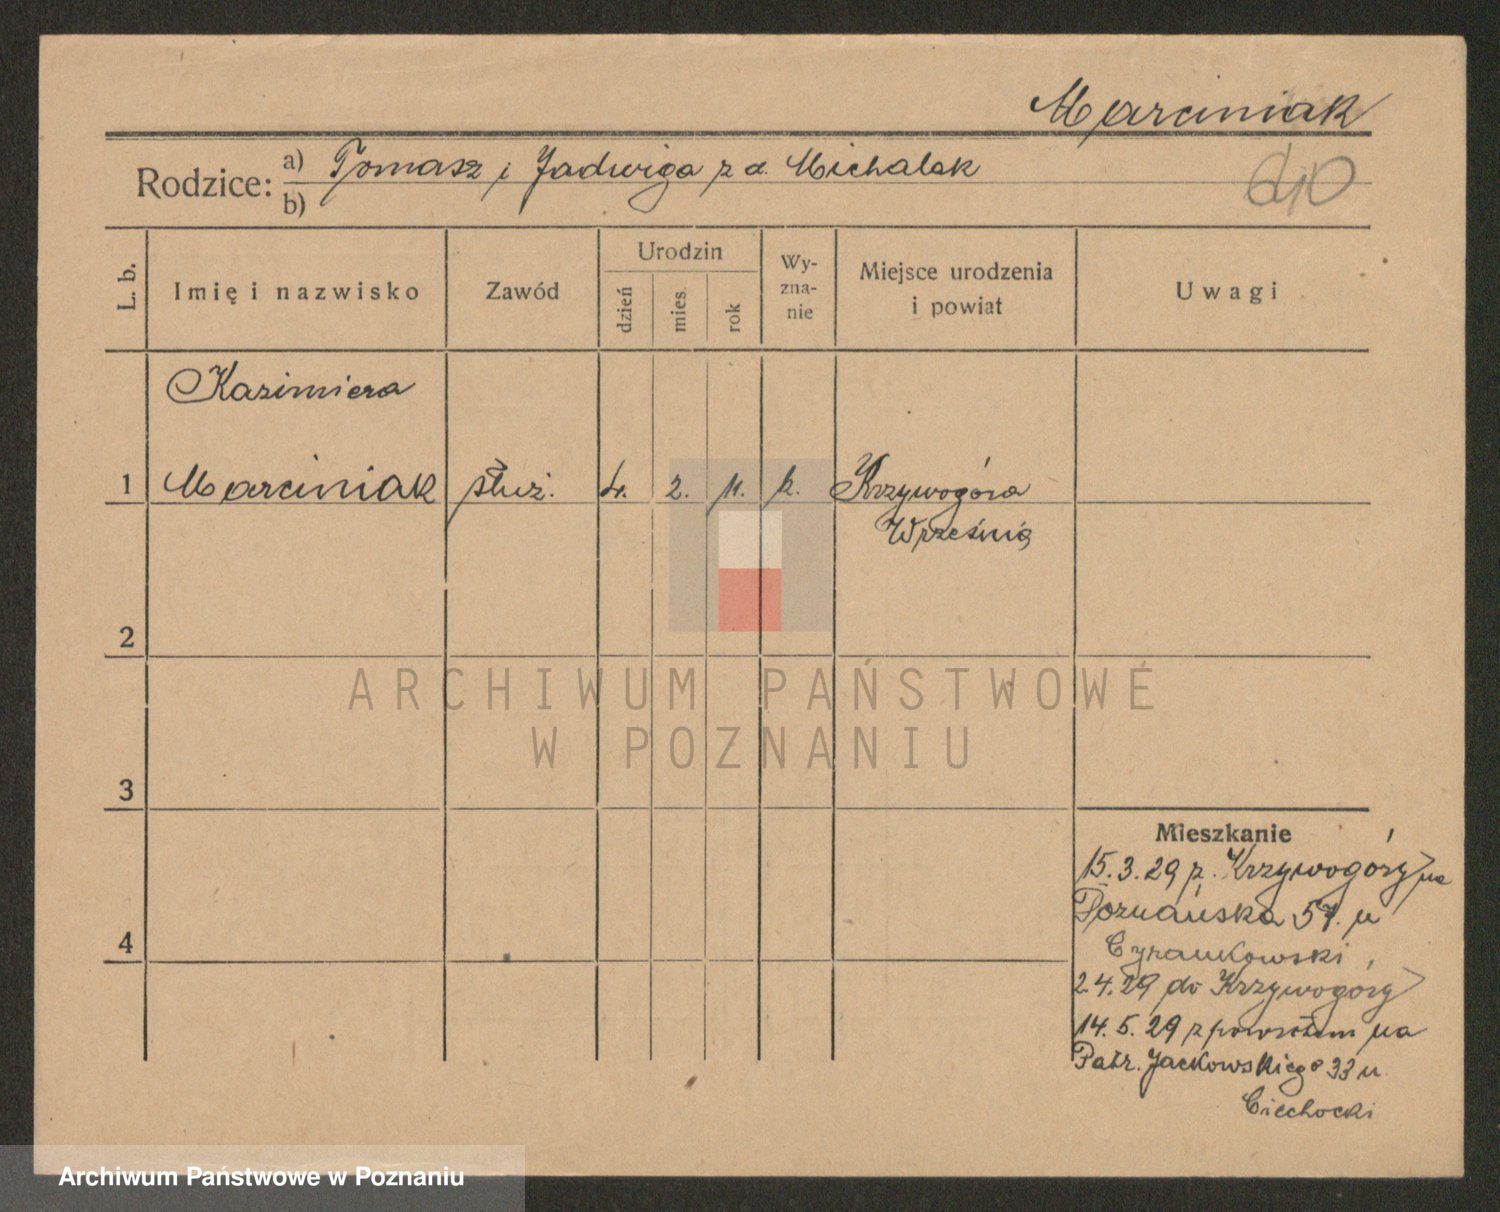 Marciniak
Rodzice: a) Tomasz i Jadwiga z d. Michalak
b)
L. b. Imię i nazwisko Zawód Urodzin dzień mies. rok Wy-zna-nie Miejsce urodzenia i powiat Uwagi
Kazimiera
1 Marciniak służ. 4. 2. 11. k. Krzywogóra
Września
2
ARCHIWUM PAŃSTWOWE
W POZNANIU
3
Mieszkanie
15.3.29 z. Krzywogóry na
Poznańska 57. u
4
Cyrankowski,
2.4.29 do Krzywogóry
14.5.29 z powrotem na
Patr. Jackowskiego 33 u
Ciechocki
Archiwum Państwowe w Poznaniu